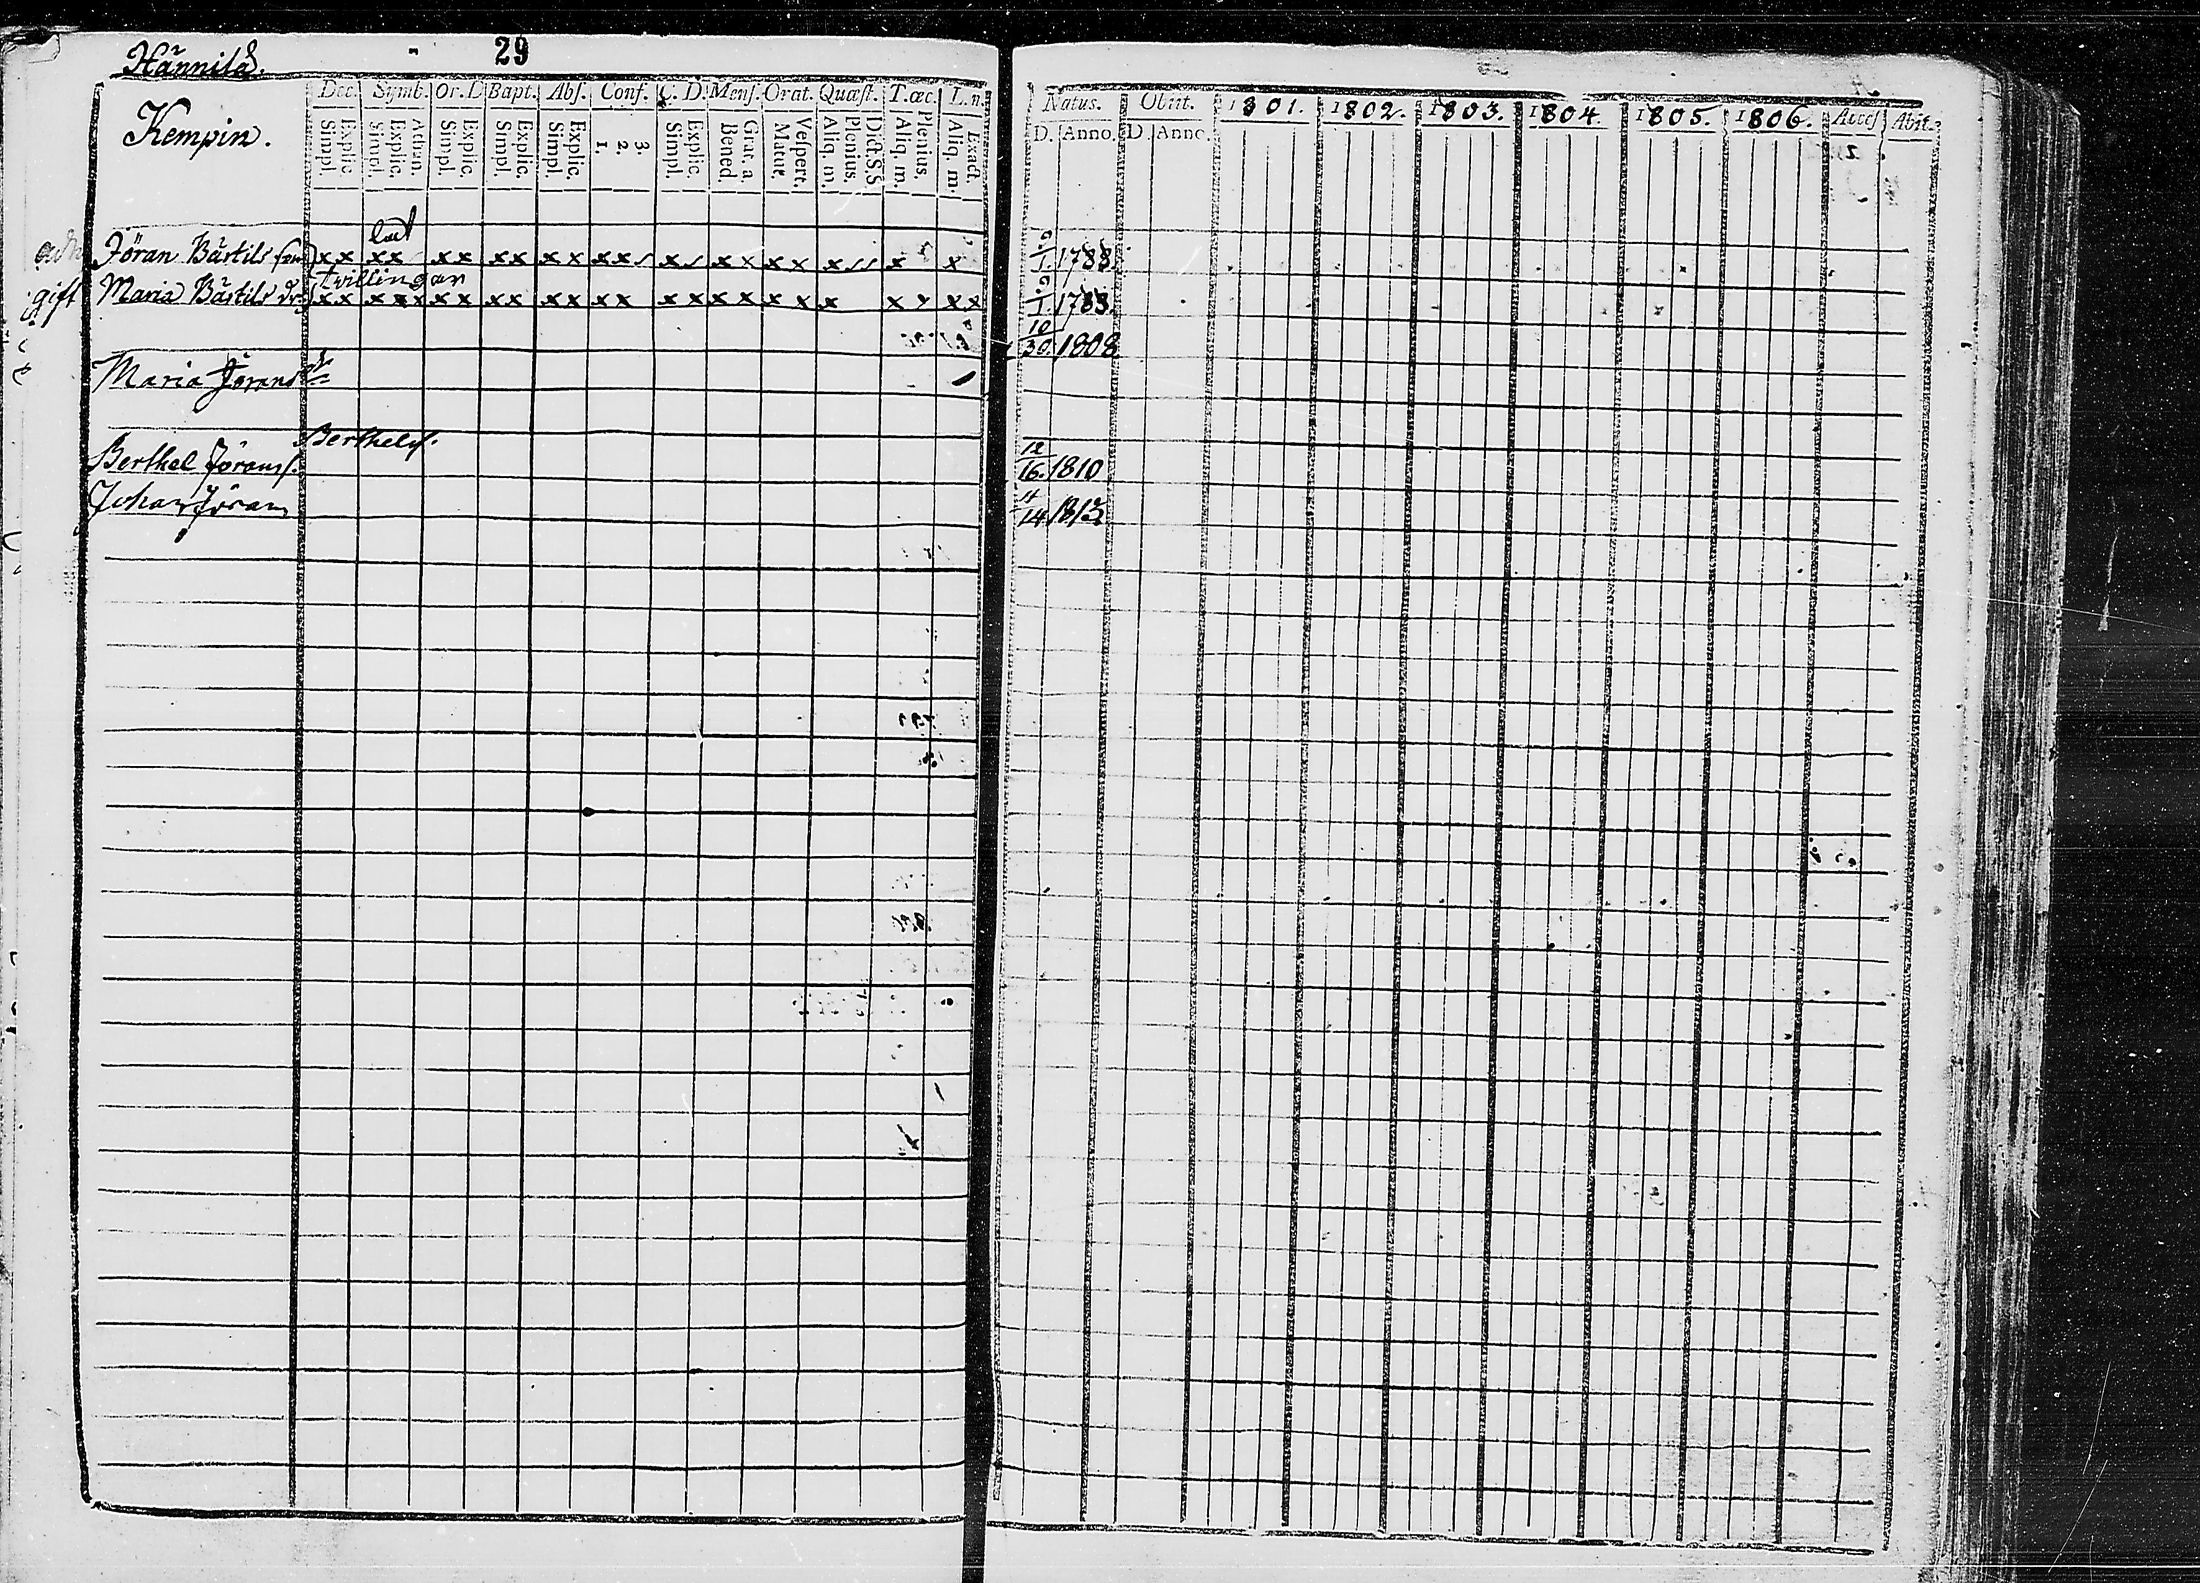 Hännilä.
29
Kempin.
Dec. Symb. Or. D Bapt. Abs. Conf. C. D. Mens. Orat. Quæst. T. œc. L. n.
Simpl. Explic. Simpl. Explic. Athan. Simpl. Explic. Simpl. Explic. Simpl. Explic. 1. 2. 3. Simpl. Explic. Bened. Grat. a. Matut. Vespert. Aliq. m. Plenius. Dict. S.S Aliq. m. Plenius. Aliq. m. Exact.
Jöran Bärtils
x x x x x x x x x x x x x x x x x x x x
gift Maria Bärtils dr. tvillingar
x x x x x x x x x x x x x x x x x x x x x x x
Maria Jörans dr
Berthels.
Berthel Jörans.
Johan Jörans
Natus. Obiit. 1801. 1802. 1803. 1804. 1805. 1806. Acces Abit.
D. Anno. D. Anno.
1. 1788.
1. 1788.
10
30. 1808
12
16. 1810
14. 1812